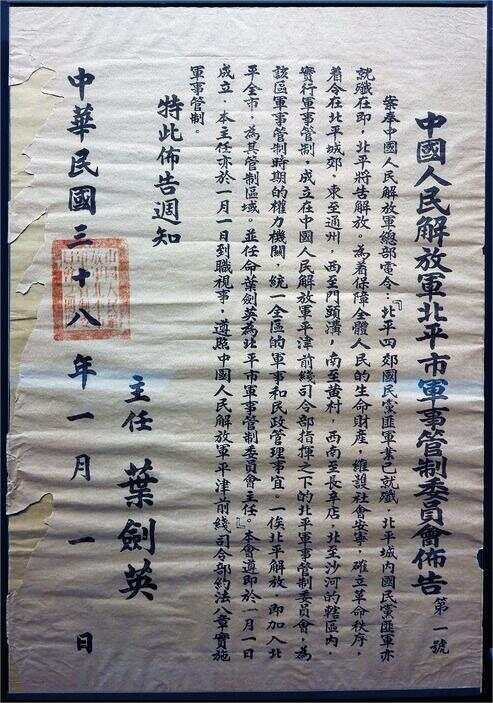 中國人民解放軍北平市軍事管制委員會佈告 第一號
案奉中國人民解放軍總部電令：『北平四郊國民黨匪軍業已就殲，北平城內國民黨匪軍亦
就殲在即，北平將告解放。為着保障全體人民的生命財產，維護社會安寧，確立革命秩序，
着令在北平城郊，東至通州，西至門頭溝，南至黄村，西南至長辛店，北至沙河的轄區內，
實行軍事管制，成立在中國人民解放軍平津前綫司令部指揮之下的北平軍事管制委員會，為
該區軍事管制時期的權力機關，統一全區的軍事和民政管理事宜。一俟北平解放，即加入北
平全市，為其管制區域。並任命葉劍英為北平市軍事管制委員會主任。』本會遵即於一月一日
成立，本主任亦於一月一日到職視事，遵照中國人民解放軍平津前綫司令部約法八章實施
軍事管制。
特此佈告週知
主任 葉劍英
中華民國三十八年一月一日